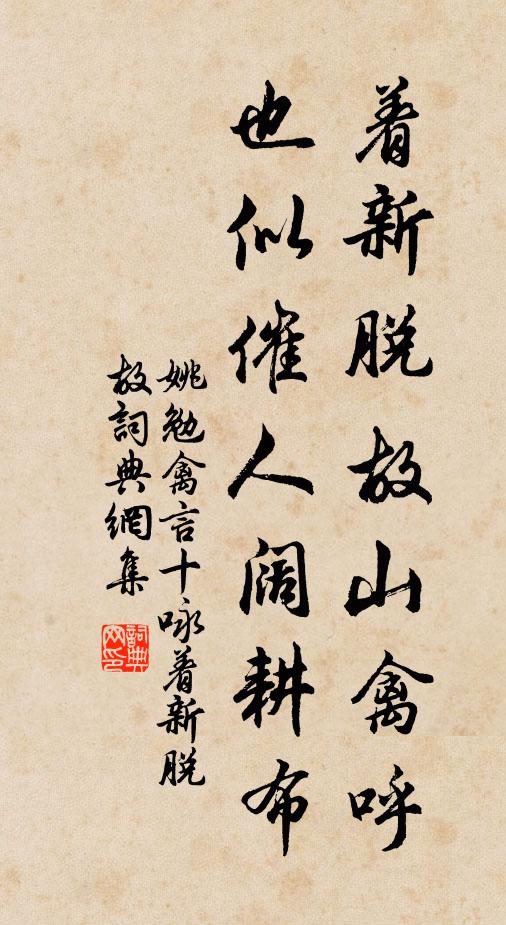 着新脱故山禽呼
也似催人阔耕布
姚勉禽言十咏着新脱
故詞典網集
詞典網印